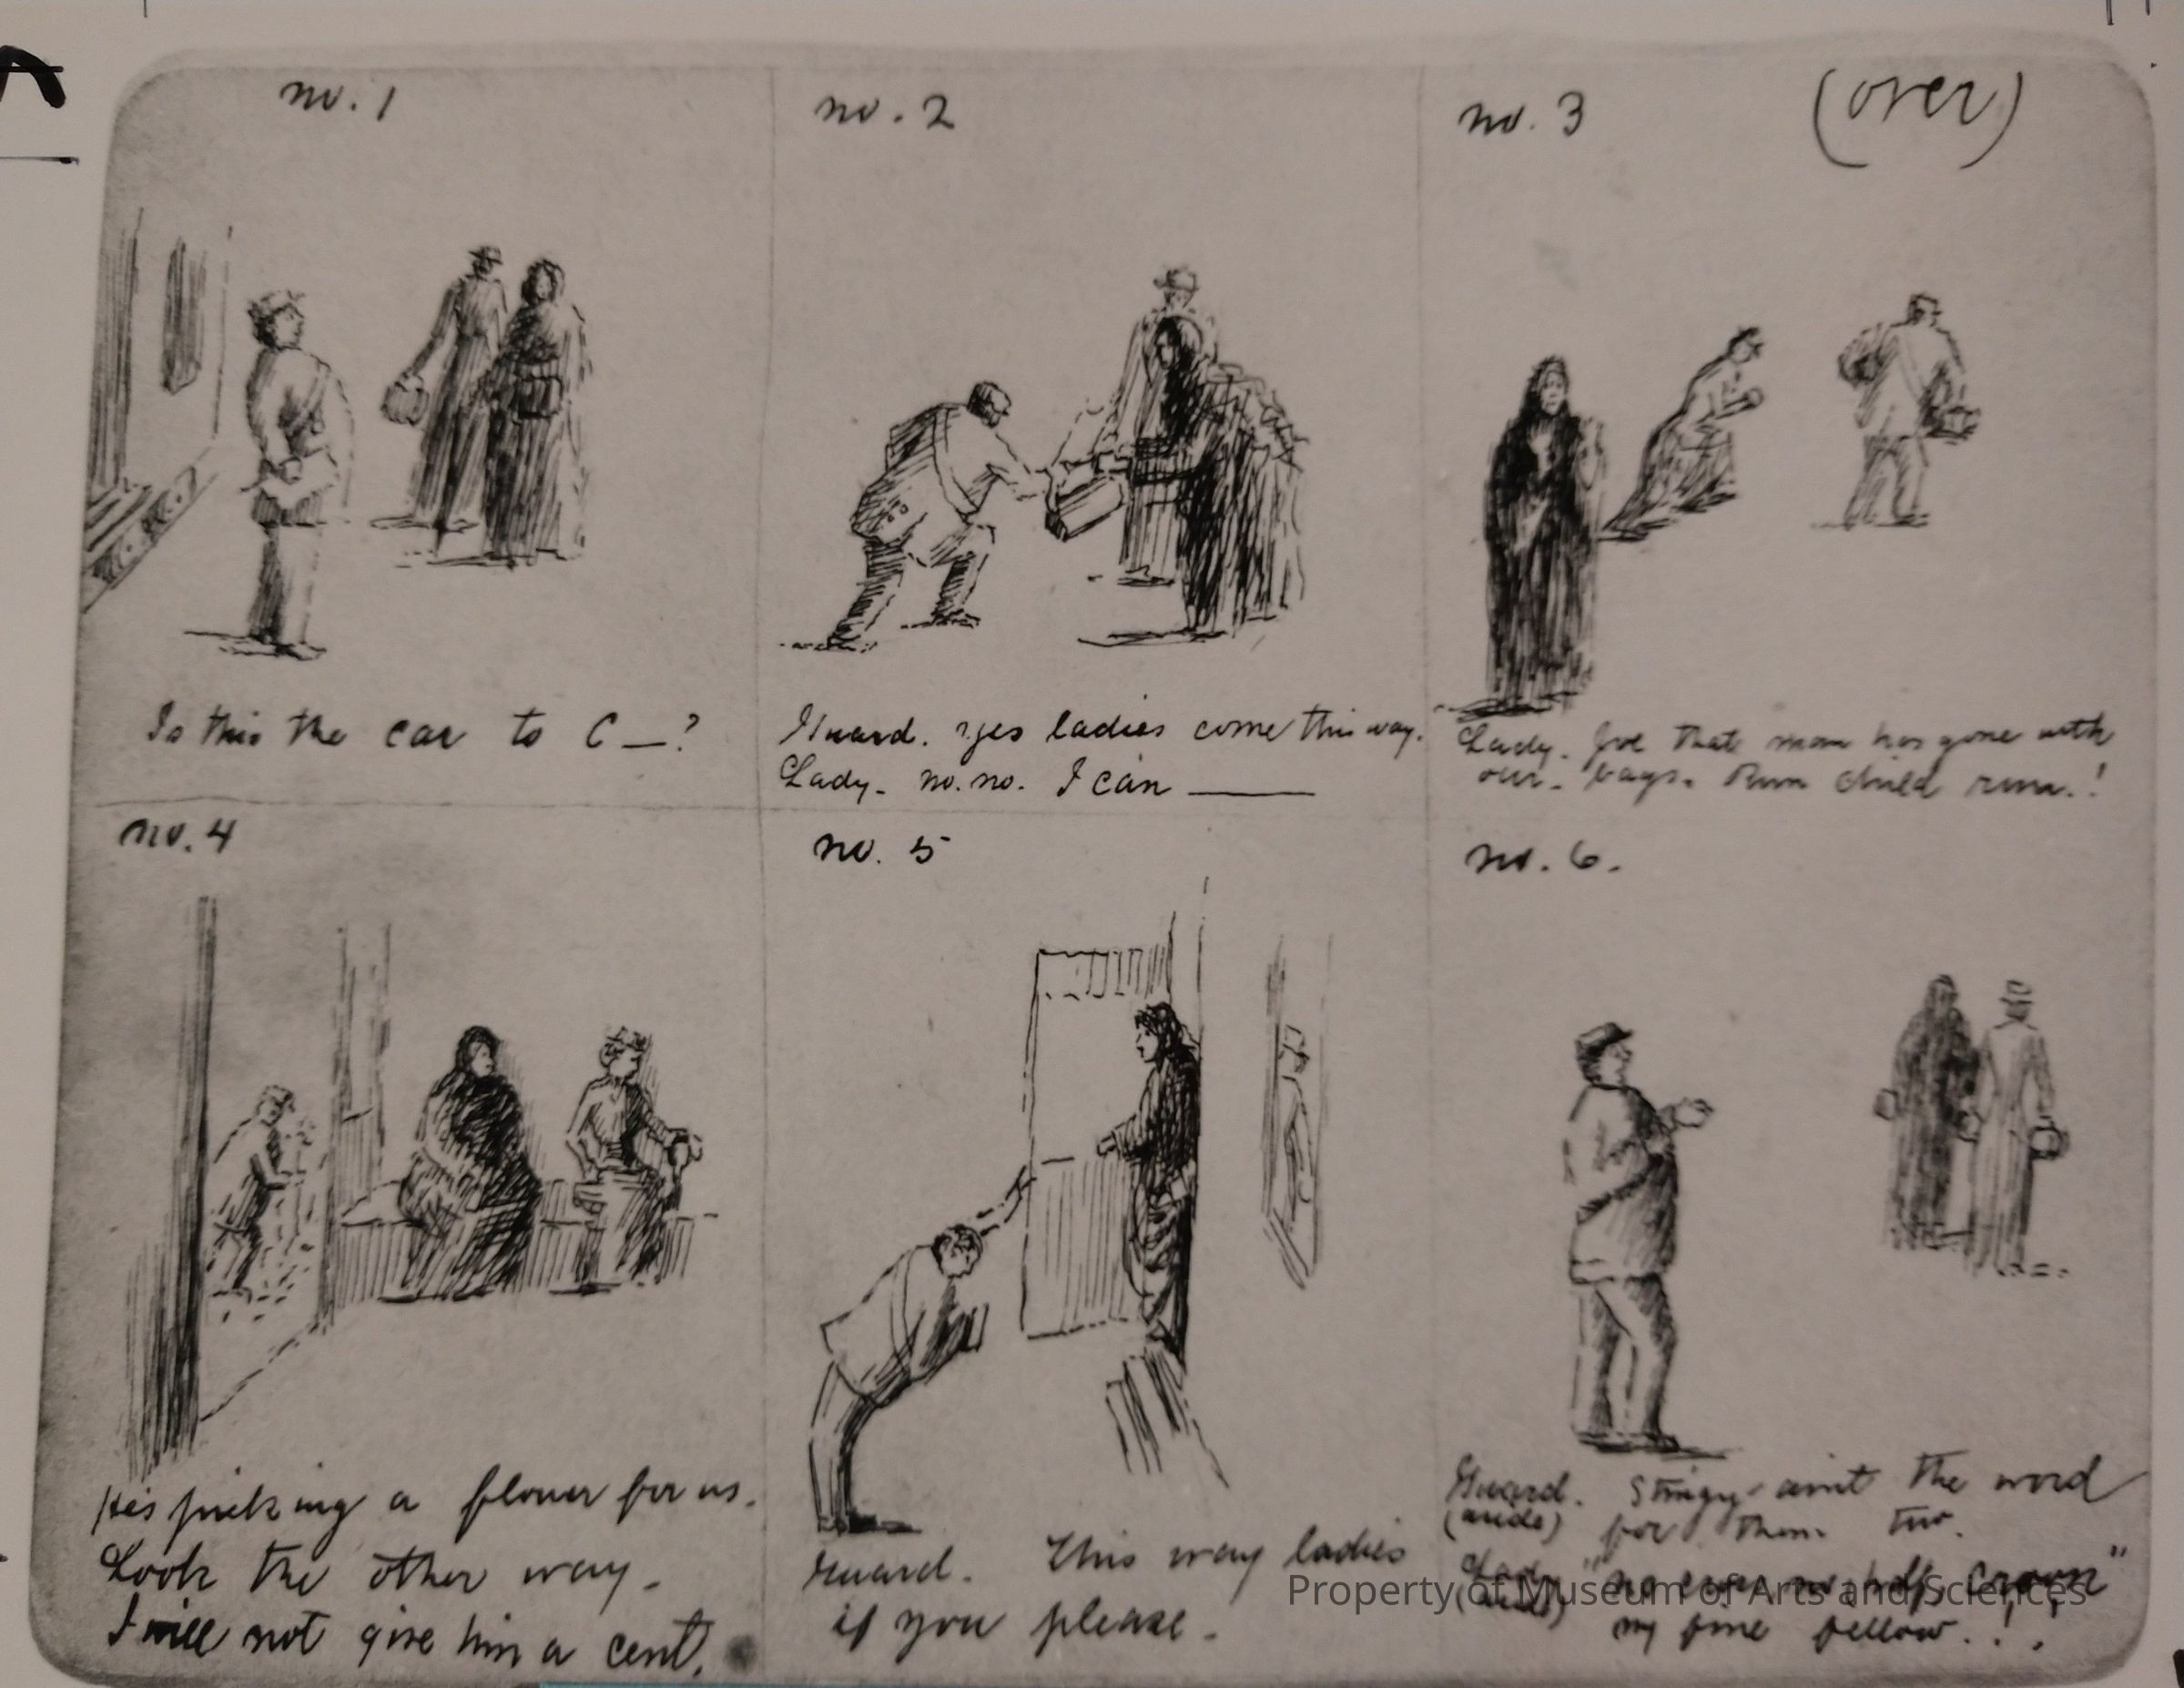 no. 1
Is this the car to C—?
no. 2
Guard. Yes ladies come this way.
Lady. no. no. I can ———
no. 3
(over)
Lady. that man has gone with
our. bags. Run child run.!
no. 4
He's picking a flower for us.
Look the other way.
I will not give him a cent.
no. 5
Guard. This way ladies
if you please.
no. 6.
Guard. Stingy aint the word
(aside) for them two.
Lady "no half crown"
(aside) my fine fellow.!!
Property of Museum of Arts and Sciences